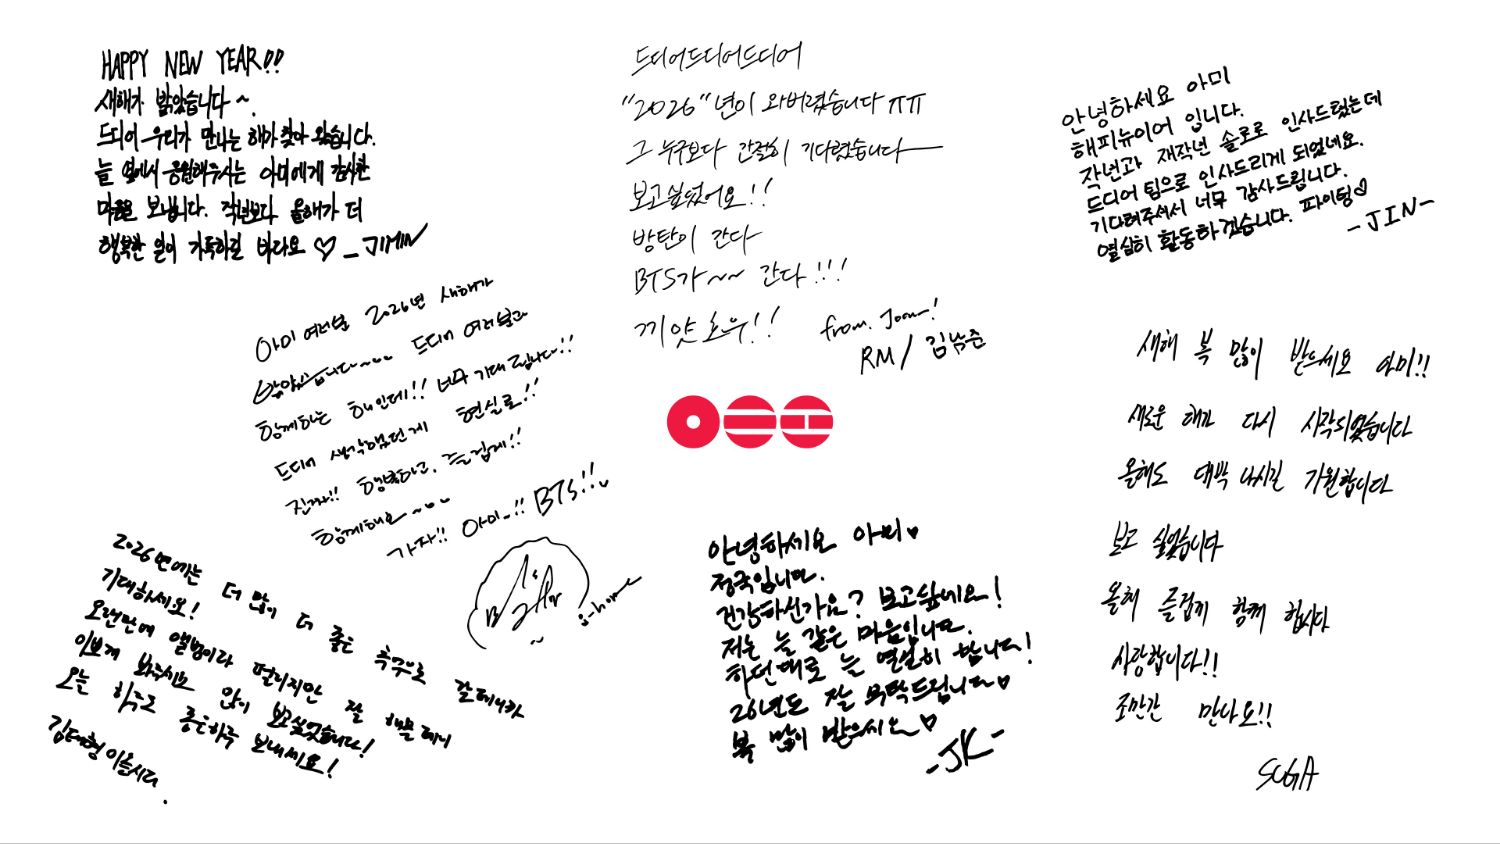 HAPPY NEW YEAR!!
새해가 밝았습니다 ~.
드디어 우리가 만나는 해가 찾아 왔습니다.
늘 옆에서 응원해주시는 아미에게 감사한
마음을 보냅니다. 작년보다 올해가 더
행복한 일이 가득하길 바라요 ♡ - JIMIN
드디어드디어드디어
"2026"년이 와버렸습니다 ㅠㅠ
그 누구보다 간절히 기다렸습니다—
보고싶었어요!!
방탄이 간다
BTS가~~ 간다!!!
끼얏호우!!
from. Joon!
RM / 김남준
안녕하세요 아미
해피뉴이어 입니다.
작년과 재작년 솔로로 인사드렸는데
드디어 팀으로 인사드리게 되었네요.
기다려주셔서 너무 감사드립니다.
열심히 활동하겠습니다. 파이팅♡
-JIN-
아미 여러분 2026년 새해가
밝았습니다~
드디어 여러분과
함께하는 해인데!! 너무 기대됩니다!!
드디어 생각했던게 현실로!!
진짜!! 행복하고, 즐겁게!!
함께해요~
가자!! 아미~!! BTS!!
j-hope
새해 복 많이 받으세요 아미!!
새로운 해가 다시 시작되었습니다
올해도 대박 나시길 기원합니다
보고 싶었습니다
올해 즐겁게 함께 합시다
사랑합니다!!
조만간 만나요!!
SUGA
2026년에는 더 많이 더 좋은 추억으로 갈테니까
기대하세요!
오랜만에 앨범이라 떨리지만 잘 해볼테니
이쁘게 봐주시요 많이 보고싶었습니다!
오늘 하루도 좋은하루 보내세요!
김태형이올시다.
안녕하세요 아미♥
정국입니다.
건강하신가요? 보고싶네요!
저는 늘 같은 마음입니다.
하던대로 늘 열심히 합니다!
26년도 잘 부탁드립니다♡
복 많이 받으시오♡
-JK-